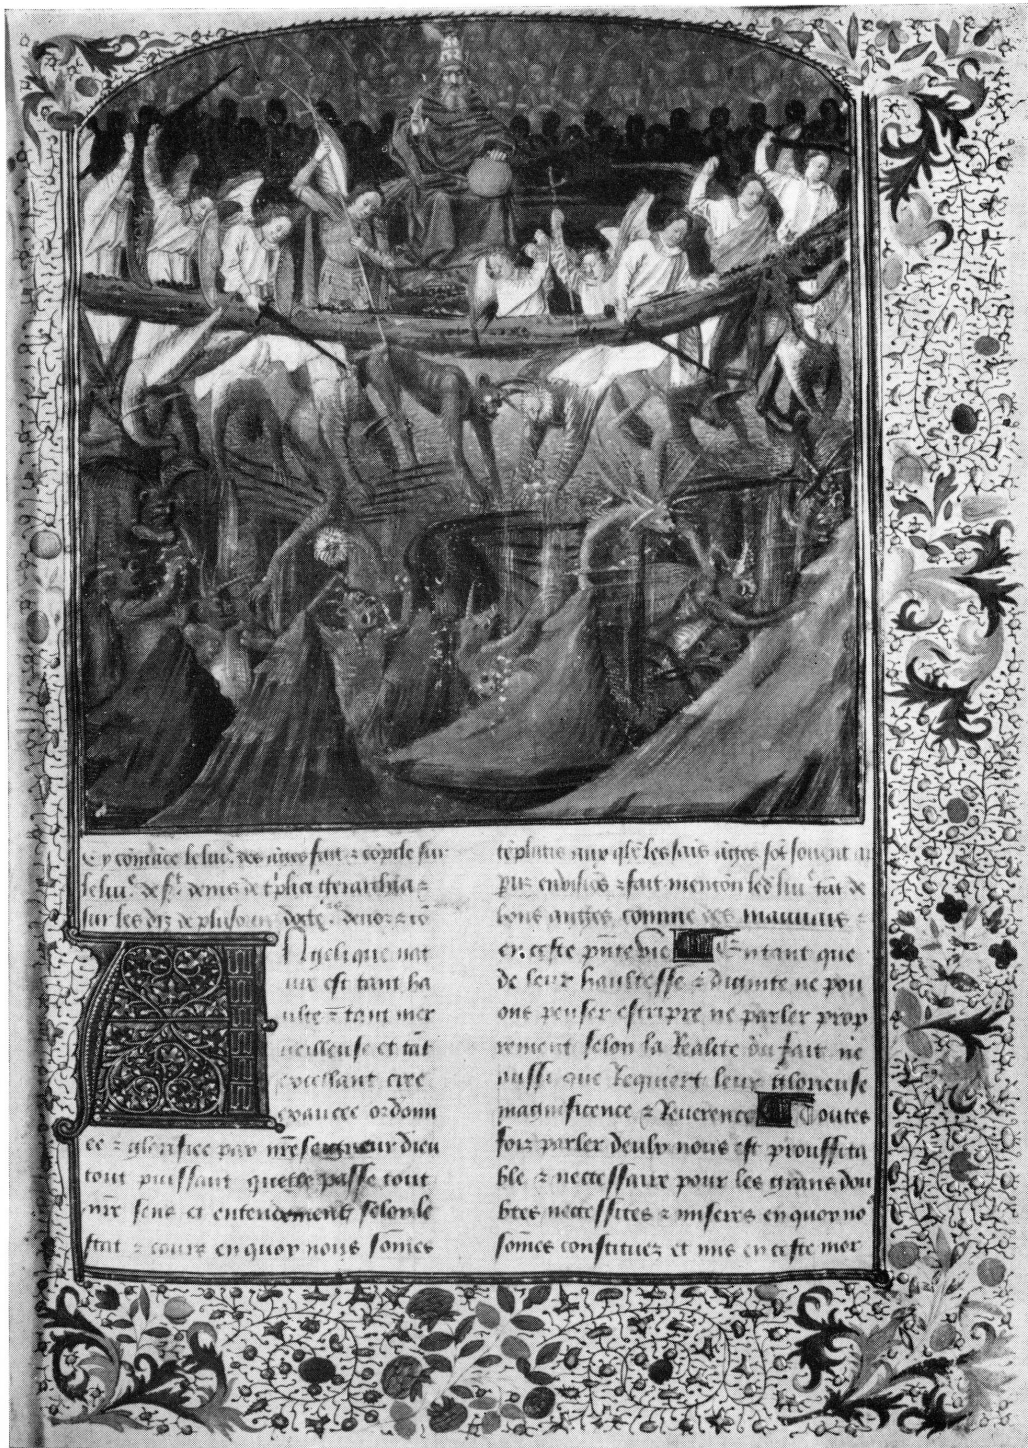 Cy comāce le liur des āges fait ⁊ cōpile sur
le liur de st denis de tplici iherarchia ⁊
sur les diz de pluseurs
Angelique nat
ure est tant ha
ulte ⁊ tant mer
ueilleuse et tāt
excellant cree
exaucee ordōnn
ee ⁊ glorifiee par nr̄e seigneur dieu
tout puissant quelle passe tout
nr̄e sens et entendement selon le
stat ⁊ cours en quoy nous sōmes
les sais āges sōt souuent
fait menciōn led liur tāt de
bons anges comme des mauuais ⁊
en ceste pn̄te vie En tant que
de leur haultesse ⁊ dignite ne pou
ons penser escripre ne parler prop
rement selon la realite du fait ne
aussi que requiert leur glorieuse
magnificence ⁊ reuerence Toutes
foiz parler deulx nous est prouffita
ble ⁊ necessaire pour les grans dou
btes necessites ⁊ miseres en quoy no9
sōmes constituez et mis en ceste mor